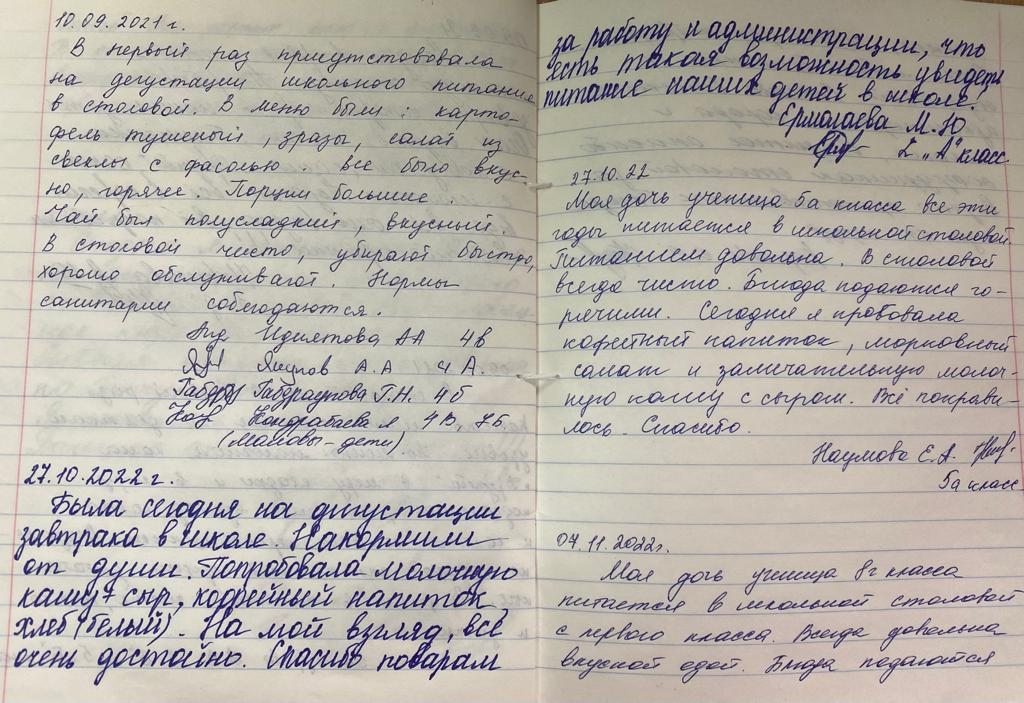 10.09.2021 г.
В первый раз присутствовала
на дегустации школьного питания
в столовой. В меню были: карто-
фель тушеный, зразы, салат из
свеклы с фасолью. все было вкус-
но, горячее. Порции большие.
Чай был полусладкий, вкусный.
В столовой чисто, убирают быстро,
хорошо обслуживают. Нормы
санитарии соблюдаются.
АА 4В
Якупов А.А 4 А.
Г.Н. 4б
Кондрабаева 4В, 7Б
(дети)
27.10.2022 г.
Была сегодня на дегустации
завтрака в школе Накормили
от души. Попробовала молочную
кашу+ сыр, кофейный напиток,
хлеб (белый). На мой взгляд, всё
очень достойно. Спасибо поварам
за работу и администрации, что
есть такая возможность увидеть
питание наших детей в школе.
Ермолаева М.Ю
2 "А" класс
27.10.22
Моя дочь ученица 5а класса все эти
годы питается в школьной столовой.
Питанием довольна. В столовой
всегда чисто. Блюда подаются го-
рячими. Сегодня я пробовала
кофейный напиток, морковный
салат и замечательную молоч-
ную кашу с сыром. Всё понрави-
лось. Спасибо.
Наумова Е.А.
5а класс
07.11.2022г.
Моя дочь ученица 8г класса
питается в школьной столовой
с первого класса. Всегда довольна
вкусной едой. Блюда подаются